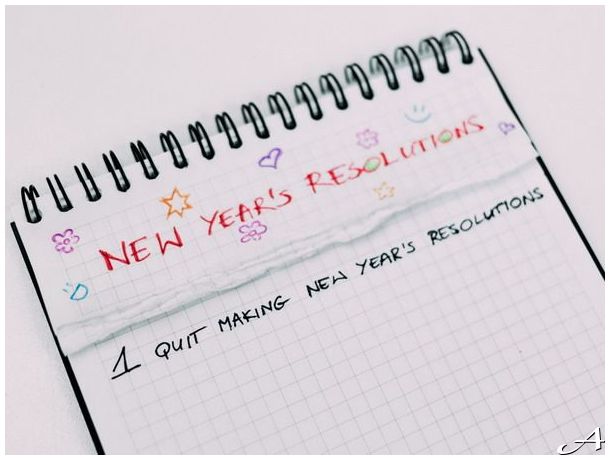 NEW YEAR'S RESOLUTIONS
1 QUIT MAKING NEW YEAR'S RESOLUTIONS
A